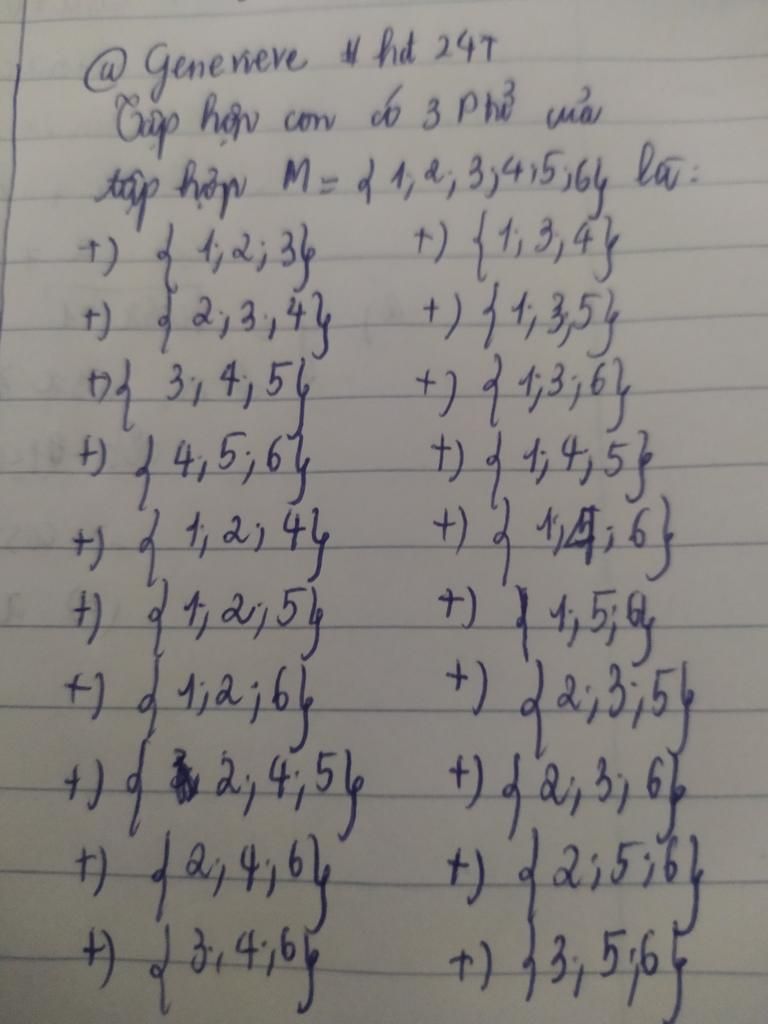 @ Genevieve # hđ 247
Tập hợp con có 3 Phtử của
tập hợp M = { 1; 2; 3; 4; 5; 6} là:
+) { 1; 2; 3} +) { 1; 3; 4}
+) { 2; 3; 4} +) { 1; 3; 5}
+) { 3; 4; 5} +) { 1; 3; 6}
+) { 4; 5; 6} +) { 1; 4; 5}
+) { 1; 2; 4} +) { 1; 4; 6}
+) { 1; 2; 5} +) { 1; 5; 6}
+) { 1; 2; 6} +) { 2; 3; 5}
+) { 2; 4; 5} +) { 2; 3; 6}
+) { 2; 4; 6} +) { 2; 5; 6}
+) { 3; 4; 6} +) { 3; 5; 6}